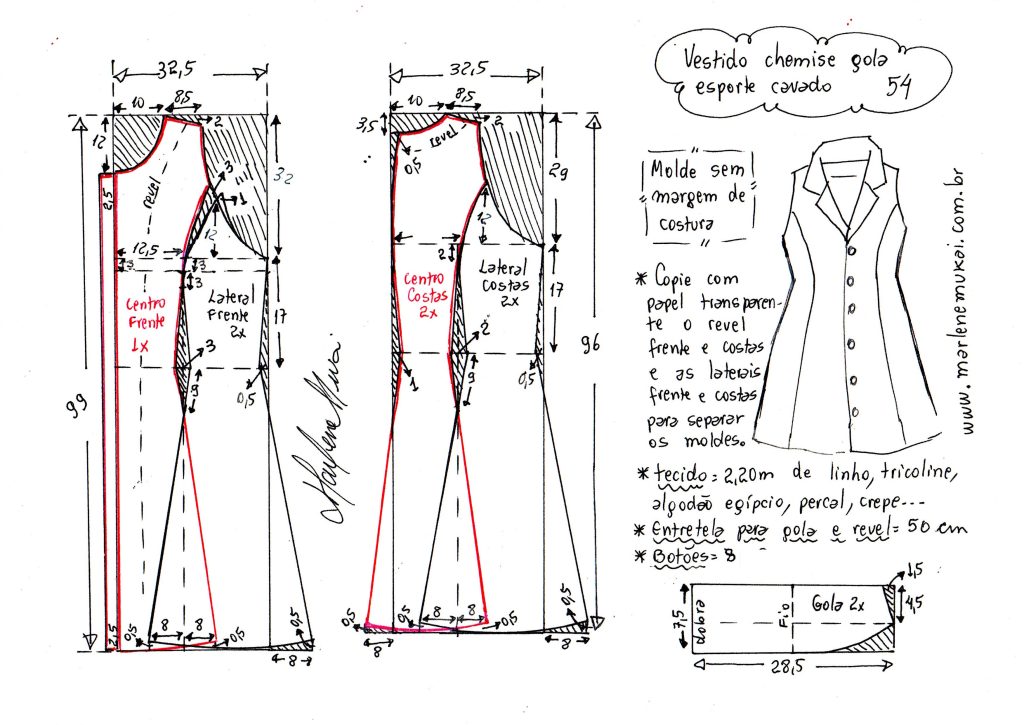 Vestido chemise gola
esporte cavado 54
32,5
10
8,5
2
12
revel
3
1
32
2,5
12,5
12
3
3
3
Centro
Frente
1x
Lateral
Frente
2x
17
3
9
0,5
99
8
8
0,5
0,5
0,5
2,5
8
32,5
10
8,5
3,5
2
revel
0,5
29
12
2
Centro
Costas
2x
Lateral
Costas
2x
17
2
1
9
0,5
96
0,5
0,5
8
8
0,5
0,5
8
8
Molde sem
margem de
costura
* Copie com
papel transparen-
te o revel
frente e costas
e as laterais
frente e costas
para separar
os moldes.
* tecido = 2,20m de linho, tricoline,
algodão egípcio, percal, crepe---
* Entretela para gola e revel = 50 cm
* Botões = 8
www.marlenemukai.com.br
1,5
7,5
dobra
Fio
Gola 2x
4,5
28,5